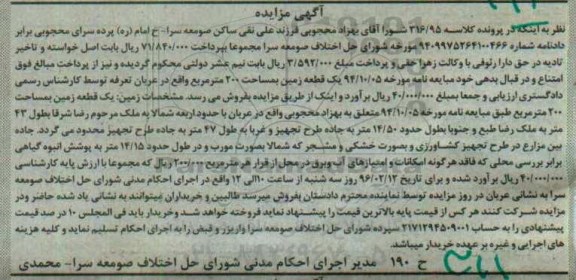 آگهی مزایده
نظر به اینکه در پرونده کلاسه ۳۱۶/۹۵ شسورا آقای بهزاد محجوبی فرزند علی نقی ساکن صومعه سرا- خ امام (ره) پرده سرای محجوبی برابر
دادنامه شماره ۹۴۰۹۹۷۵۲۶۴۱۰۰۴۶۶ مورخه شورای حل اختلاف صومعه سرا محکوما بپرداخت ۷۱/۸۴۰/۰۰۰ ریال بابت اصل خواسته و تاخیر
تادیه در حق دارا رئوفی با وکالت زهرا حقی و پرداخت مبلغ ۳/۵۹۲/۰۰۰ ریال بابت نیم عشر دولتی محکوم گردیده و نیز از پرداخت مبالغ فوق
امتناع و در قبال بدهی خود مبایعه نامه مورخه ۹۴/۱۰/۰۵ یک قطعه زمین بمساحت ۲۰۰ مترمربع واقع در عربان تعرفه توسط کارشناس رسمی
دادگستری ارزیابی و جمعا بمبلغ ۴۰/۰۰۰/۰۰۰ ریال برآورد و اینک از طریق مزایده بفروش می رسد. مشخصات زمین: یک قطعه زمین بمساحت
۲۰۰ مترمربع طبق مبایعه نامه مورخه ۹۴/۱۰/۰۵ متعلق به بهزاد محجوبی واقع در عربان با حدود اربعه شمالا به ملک مرحوم رضا شرقا بطول ۴۳
متر به ملک رضا طبع و جنوبا بطول حدود ۱۴/۵۰ متر به جاده طرح تجهیز و غربا به طول ۴۷ متر به جاده طرح تجهیز محدود می گردد. جاده
بین مزارع در طرح تجهیز کشساورزی و بصورت خشکی و مشسجر که شمالا بصورت مورب و در طول حدود ۱۴/۱۵ متر به پوشش انبوه گیاهی
برابر بررسی محلی که فاقد هرگونه امکانات و امتیازهای آب و برق در محل از قرار هر مترمربع ۲۰۰/۰۰۰ ریال که مجموعا با ارزش پایه کارشناسی
۴۰/۰۰۰/۰۰۰ ریال برآورد شده و برای تاریخ ۹۶/۰۲/۱۲ روز سه شنبه از ساعت ۱۰ الی ۱۲ واقع در اجرای احکام مدنی شورای حل اختلاف صومعه
سرا به نشانی عربان در روز مزایده توسط نماینده محترم دادستان بفروش میرسد طالبین و خریداران میتوانند به نشانی یاد شده حاضر ودر
مزایده شسرکت کنند هر کس از قیمت پایه بالاترین قیمت را پیشنهاد نماید فروخته خواهد شسد وخریدار باید فی المجلس ۱۰ در صد قیمت
پیشنهادی را به حساب ۲۱۷۱۲۹۴۵۰۹۰۰۱ سپرده شورای حل اختلاف صومعه سرا واریز و قبض را به اجرای احکام تسلیم نماید و کلیه هزینه
های اجرایی و غیره بر عهده خریدار میباشد.
ح ۱۹۰ مدیر اجرای احکام مدنی شورای حل اختلاف صومعه سرا- محمدی